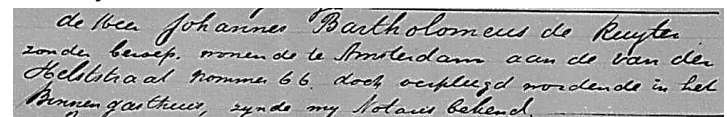 de Heer Johannes Bartholomeus de Ruyter.
zonder beroep, wonende te Amsterdam aan de van der
Helststraat nommer 66. doch verpleegd wordende in het
Binnengasthuis, zynde my Notaris bekend.